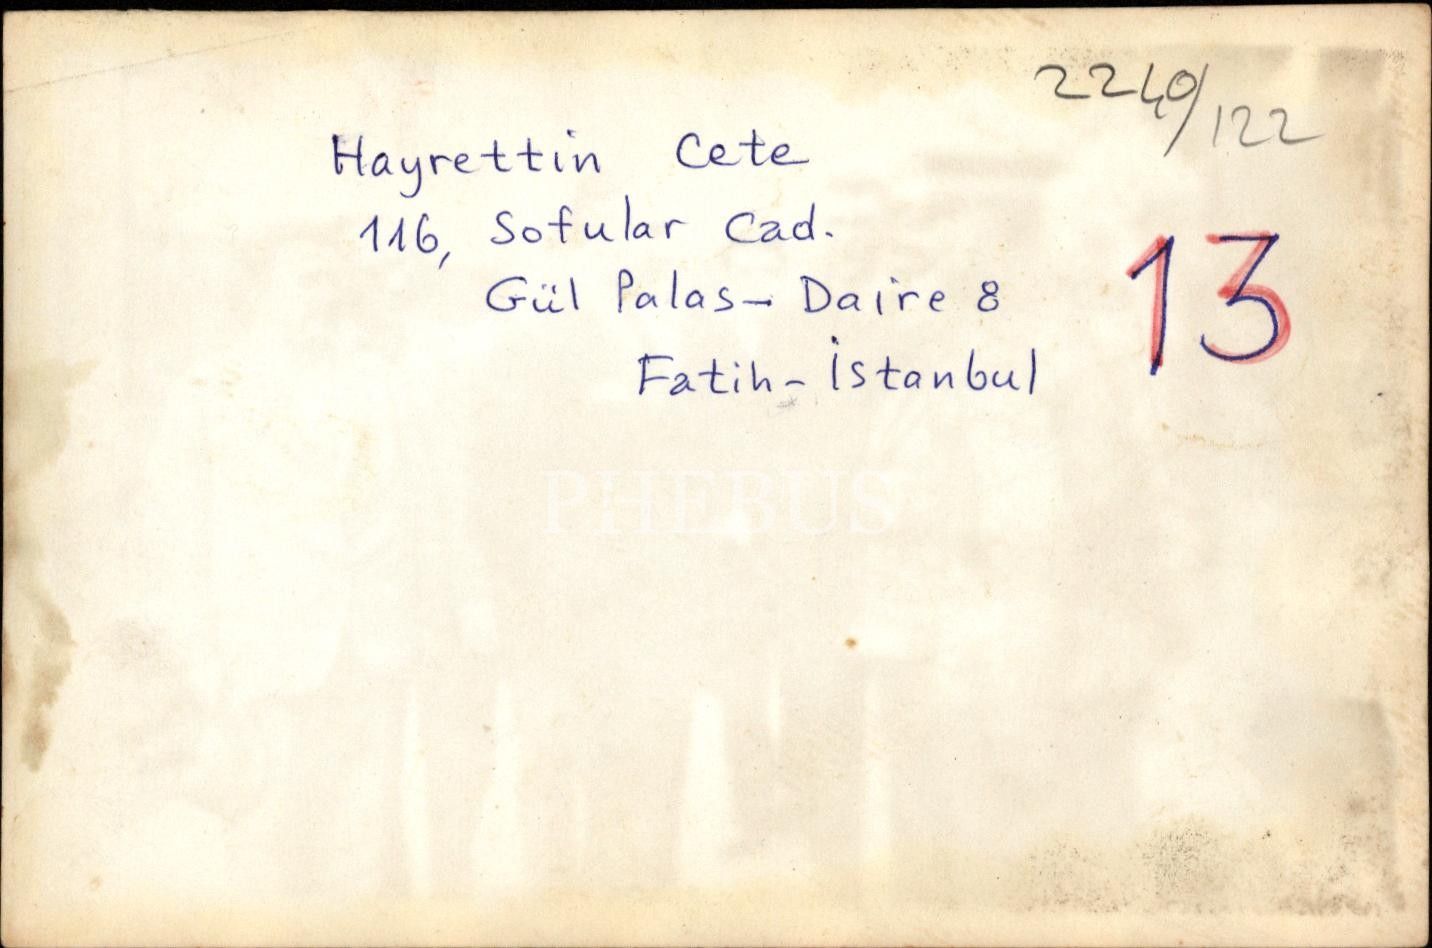 2240/122
Hayrettin Cete
116, Sofular Cad.
Gül Palas - Daire 8
Fatih - İstanbul
13
PHEBUS